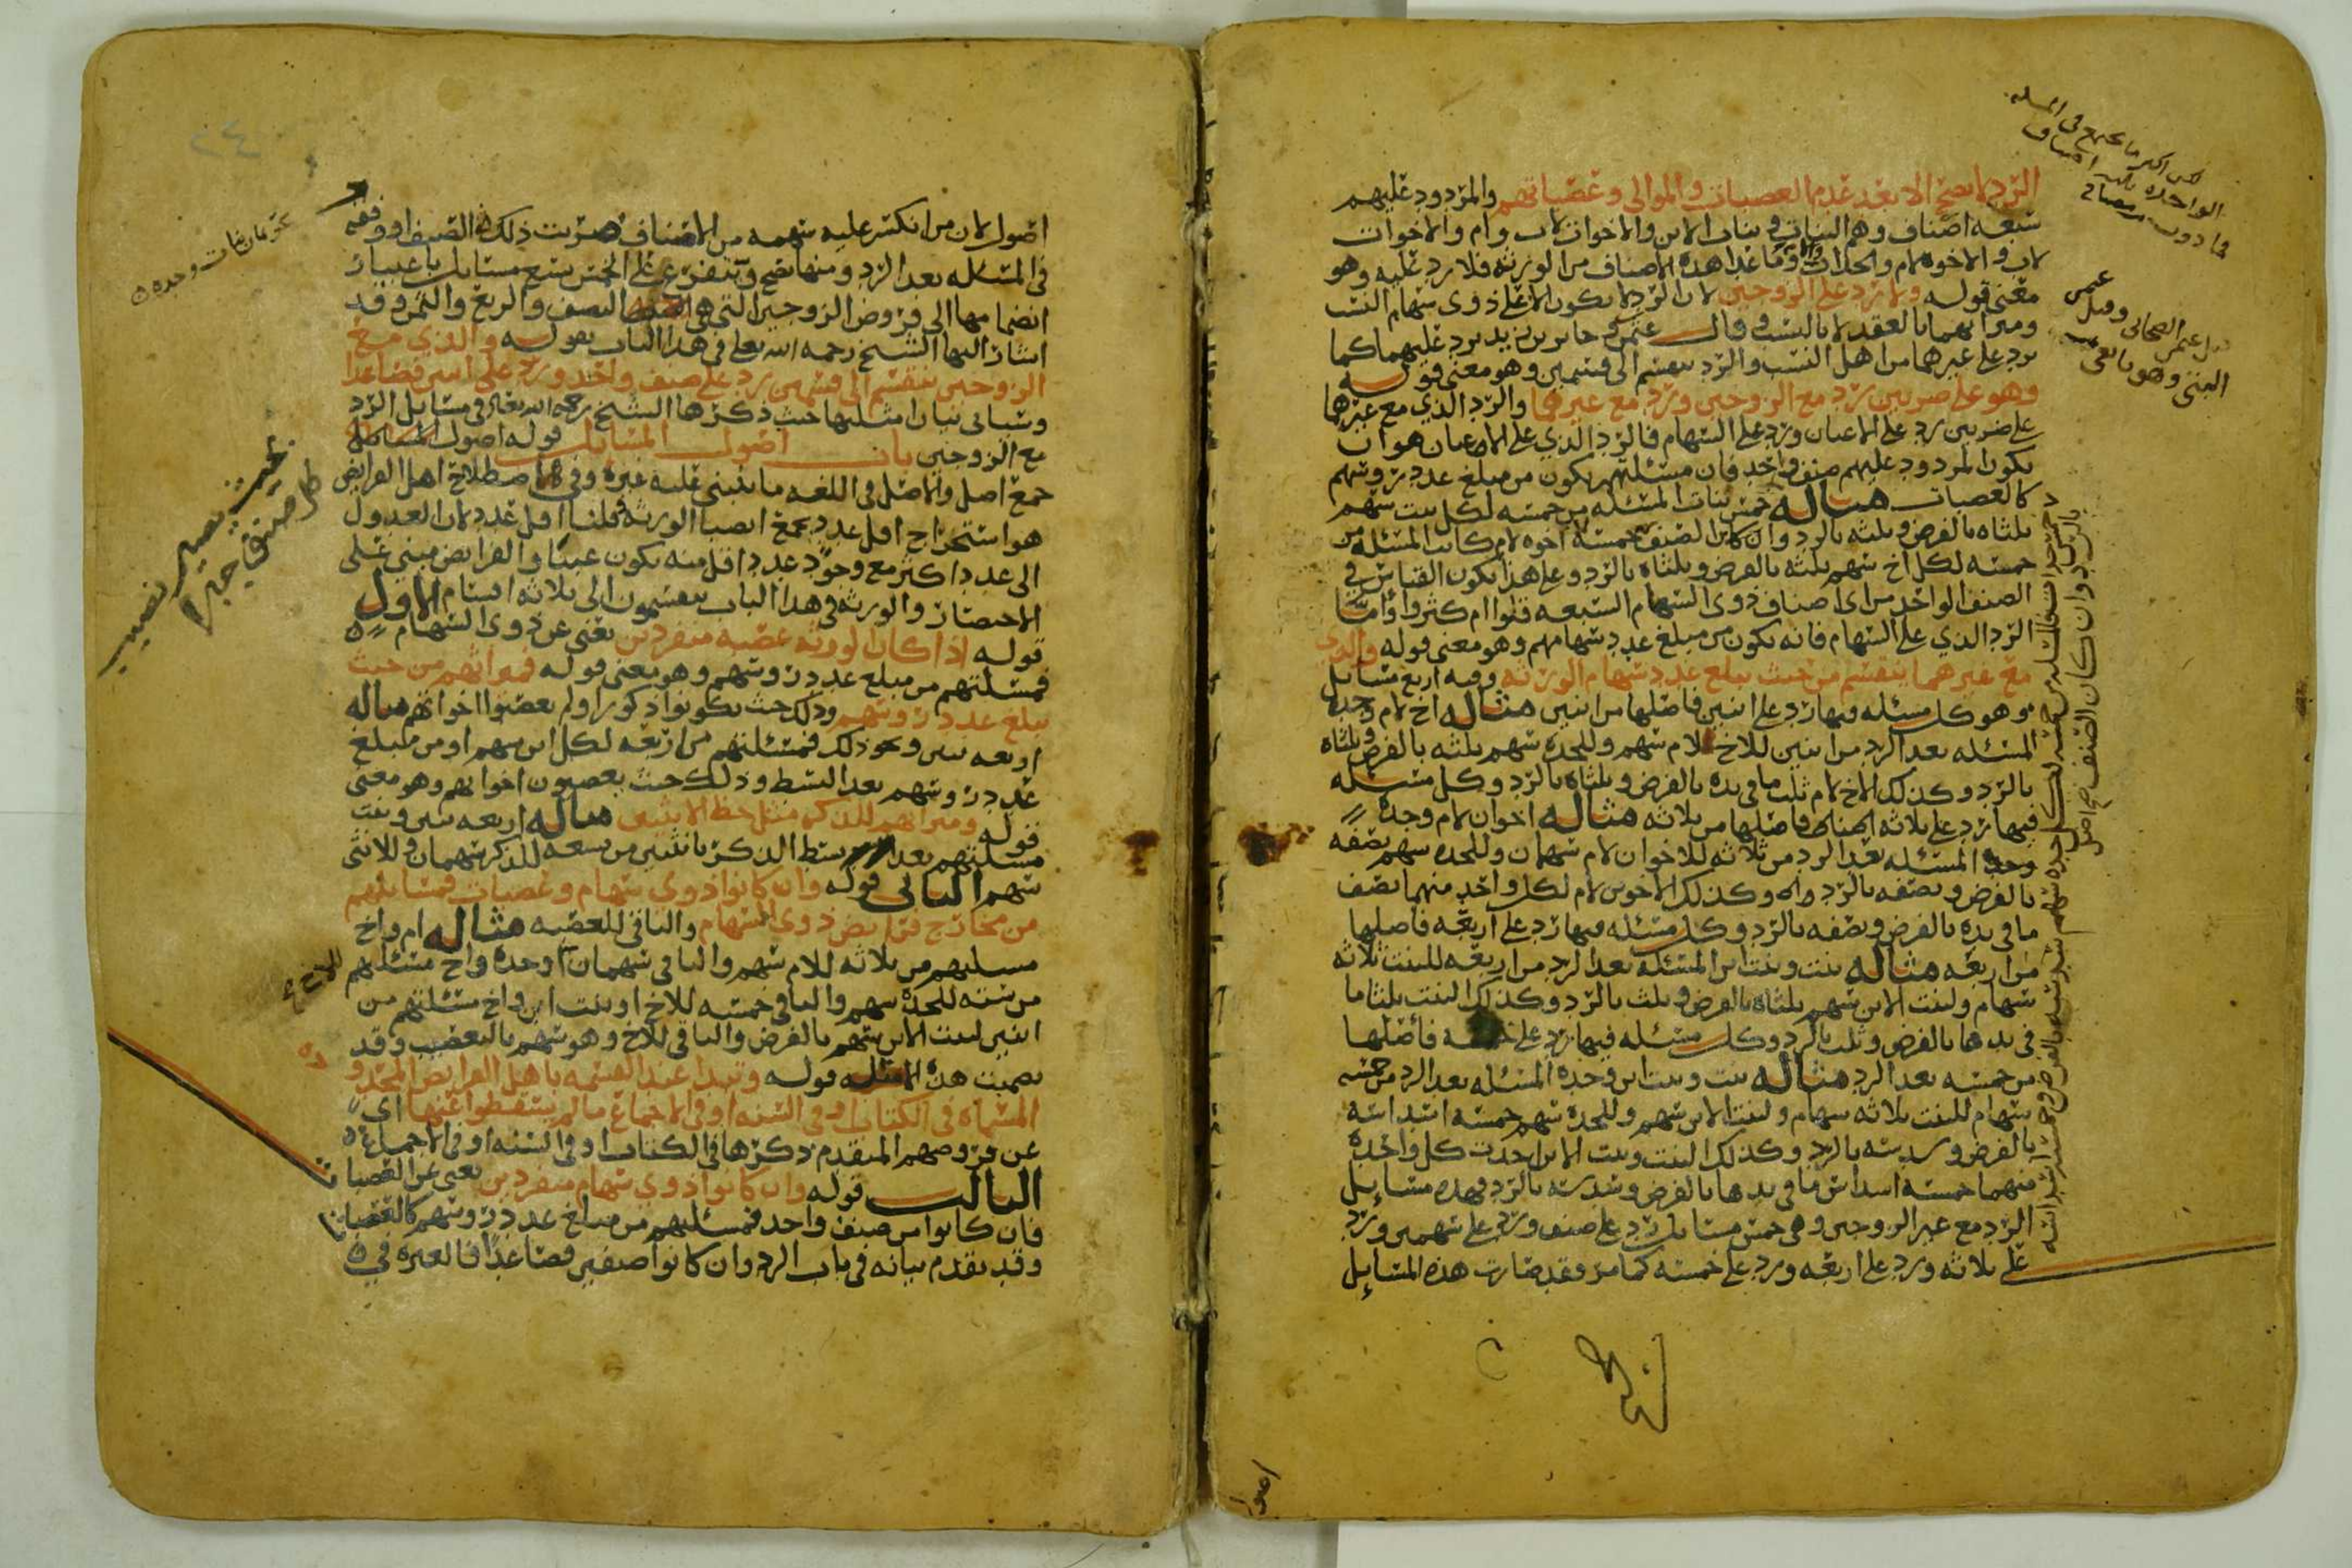 الرد لا يصح الا بعد عدم العصبات والموالي وعصباتهم والمردود عليهم
سبعه اصناف وهم البنات وبنات الابن والاخوات لاب وام والاخوات
لاب والاخوه لام والجدات وما عدا هذه الاصناف من الورثه فلا رد عليه وهو
معنى قوله ولا يرد على الزوجين لان الرد لا يكون الا على ذوي سهام النسب
وميراثهما بالعقد لا بالنسب وقال جابر بن زيد يرد عليهما كما
يرد على غيرهما من اهل النسب والرد ينقسم الى قسمين وهو معنى قوله
وهو على ضربين رد مع الزوجين ورد مع غيرهما والرد الذي مع غيرها
على ضربين رد على الاعيان ورد على السهام فالرد الذي على الاعيان هو ان
يكون المردود عليهم صنف واحد فان مسئلتهم يكون من مبلغ عدد روسهم
كالعصبات مثاله خمس بنات المسئله من خمسه لكل بنت سهم
ثلثاه بالفرض وثلثه بالرد وان كان الصنف خمسة اخوه لام كانت المسئله من
خمسه لكل اخ سهم ثلثه بالفرض وثلثاه بالرد وعلى هذا يكون القياس في
الصنف الواحد من اي اصناف ذوي السهام السبعه قلوا ام كثروا واما
الرد الذي على السهام فانه يكون من مبلغ عدد سهامهم وهو معنى قوله والذي
مع غيرهما ينقسم من حيث يبلغ عدد سهام الورثه وفيه اربع مسايل
وهو كل مسئله فيها رد على اثنين فاصلها من اثنين مثاله اخ لام وجده
المسئله بعد الرد من اثنين للاخ لام سهم وللجده سهم ثلثه بالفرض وثلثاه
بالرد وكذلك الاخ لام ثلث ما في يده بالفرض وثلثاه بالرد وكل مسئله
فيها رد على ثلاثه فاصلها من ثلاثه مثاله اخوان لام وجده
المسئله بعد الرد من ثلاثه للاخوان لام سهمان وللجده سهم نصفه
بالفرض ونصفه بالرد وكذلك الاخوين لام لكل واحد منهما نصف
ما في يده بالفرض ونصفه بالرد وكل مسئله فيها رد على اربعه فاصلها
من اربعه مثاله بنت وبنت ابن المسئله بعد الرد من اربعه للبنت ثلاثه
سهام ولبنت الابن سهم ثلثاه بالفرض وثلث بالرد وكذلك البنت ثلثا ما
في يدها بالفرض وثلث بالرد وكل مسئله فيها رد على خمسه فاصلها
من خمسه بعد الرد مثاله بنت وبنت ابن وجده المسئله بعد الرد من خمسه
سهام للبنت ثلاثه سهام ولبنت الابن سهم وللجده سهم خمسه اسداسه
بالفرض وسدسه بالرد وكذلك البنت وبنت الابن اخذت كل واحده
منهما خمسه اسداس ما في يدها بالفرض وسدسه بالرد فهذه مسايل
الرد مع غير الزوجين وهي خمس مسايل رد على صنف ورد على سهمين ورد
على ثلاثه ورد على اربعه ورد على خمسه كما مر وقد صارت هذه المسايل
اصول لان من انكسر عليه سهمه من الاصناف ضربت ذلك الصنف او وفقه
في المسئله بعد الرد ومنها تصح ويتفرع على الخمس سبع مسايل باعتبار
انضمامها الى فروض الزوجين التي هي النصف والربع والثمن وقد
اشار اليها الشيخ رحمه الله تعالى في هذا الباب بقوله والذي مع
الزوجين ينقسم الى قسمين رد على صنف واحد ورد على اثنين فصاعدا
وسياتي بيان امثلتها حيث ذكرها الشيخ رحمه الله تعالى في مسايل الرد
مع الزوجين باب اصول المسايل قوله اصول المسايل
جمع اصل والاصل في اللغه ما ينبني عليه غيره وفي اصطلاح اهل الفرايض
هو استخراج اقل عدد يجمع انصبا الورثه قلنا اقل عدد لان العدول
الى عدد اكثر مع وجود عدد اقل منه يكون عبثا والفرايض مبني على
الاختصار والورثه في هذا الباب ينقسمون الى ثلاثه اقسام الاول
قوله اذا كان الورثه عصبه منفردين يعني عن ذوي السهام
فمسئلتهم من مبلغ عدد روسهم وهو معنى قوله فميراثهم من حيث
يبلغ عدد روسهم وذلك حيث يكونوا ذكورا ولم يعصبوا اخواتهم مثاله
اربعه بنين ونحو ذلك فمسئلتهم من اربعه لكل ابن سهم او من مبلغ
عدد روسهم بعد البسط وذلك حيث يعصبون اخواتهم وهو معنى
قوله وميراثهم للذكر مثل حظ الانثيين مثاله اربعه بنين وبنت
مسئلتهم بعد بسط الذكر بانثيين من تسعه للذكر سهمان وللانثى
سهم الثاني قوله وان كانوا ذوي سهام وعصبات فمسايلهم
من مخارج فرايض ذوي السهام والباقي للعصبه مثاله ام واخ
مسئلتهم من ثلاثه للام سهم والباقي سهمان للاخ او جده واخ مسئلتهم
من سته للجده سهم والباقي خمسه للاخ او بنت ابن واخ مسئلتهم من
اثنين لبنت الابن سهم بالفرض والباقي للاخ وهو سهم بالتعصيب وقد
تضمنت هذه المسئله قوله وتبدا عند القسمه باهل الفرايض المحدوده
المسماه في الكتاب او في السنه او في الاجماع ما لم يسقطوا عنها اي
عن فروضهم المتقدم ذكرها في الكتاب او في السنه او في الاجماع
الثالث قوله وان كانوا ذوي سهام منفردين يعني عن العصبات
فان كانوا من صنف واحد فمسئلتهم من مبلغ عدد روسهم كالعصبات
وقد تقدم بيانه في باب الرد وان كانوا صنفين فصاعدا فالعبره في